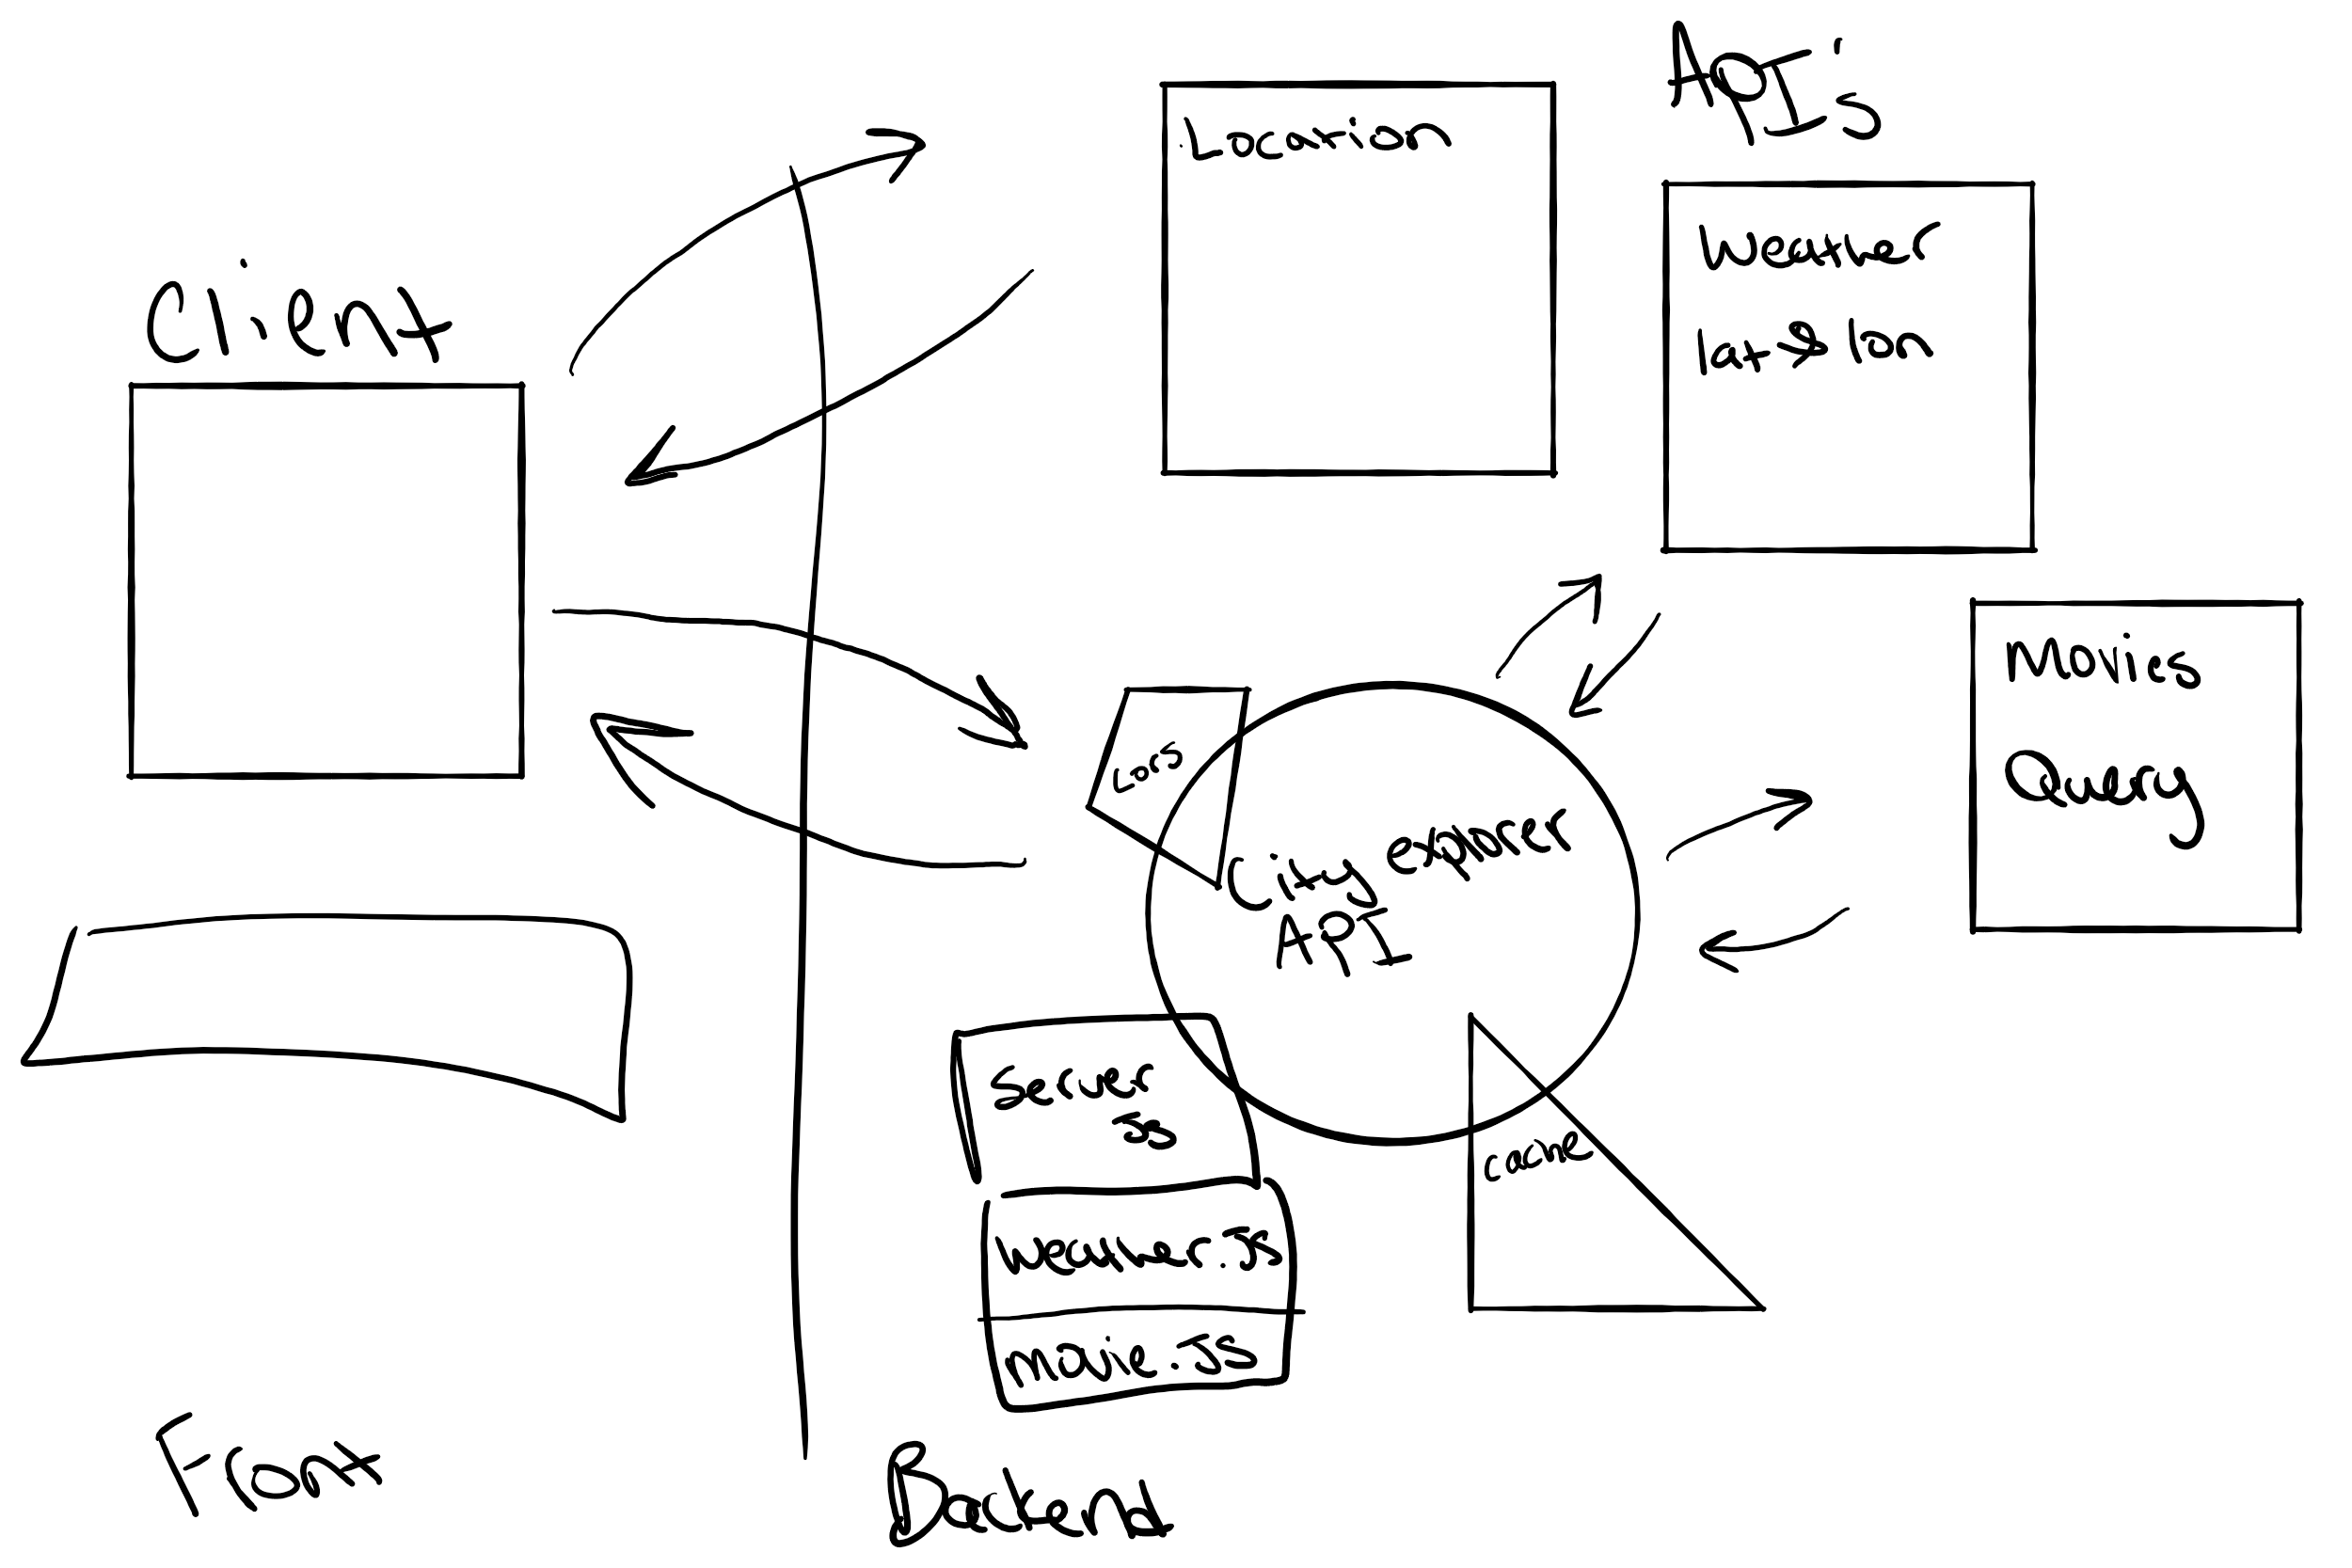 API's
Location
Weather
lat & lon
Client
Movies
Query
Cors
City explorer
API
Server
JS
cache
Weather.JS
Movie.JS
Front
Backend